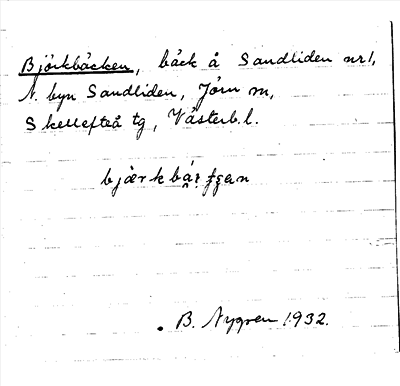 Björkbäcken, bäck å Sandliden nr 1,
N. byn Sandliden, Jörn sn,
Skellefteå tg, Västerb. l.
B. Nygren 1932.